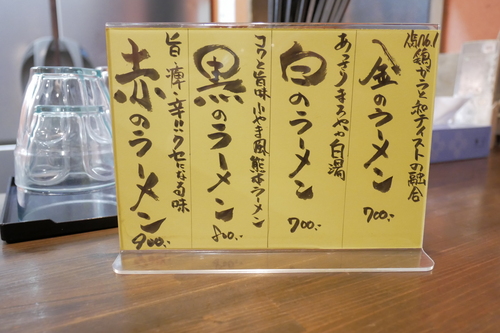 No.1
鶏ガラと和テイストの融合
金のラーメン
700.-
あっさりまろやか白湯
白のラーメン
700.-
コクと旨味 小やま風熊本ラーメン
黒のラーメン
800.-
旨・痺・辛!!クセになる味
赤のラーメン
900.-